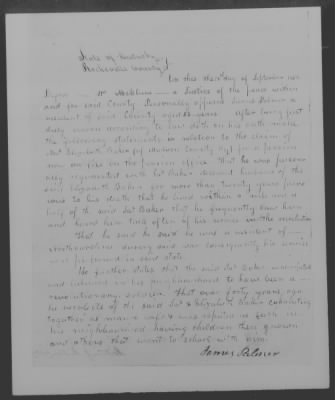 State of Kentucky
Rockcastle County
On this the day of September 185
before Wm McClure a Justice of the peace within
and for said County Personally appeared James Palmer a
resident of said County aged years After being first
duly sworn according to law doth on his oath make
the following statements in relation to the claim of
Elizabeth Baker for a pension
now on file in the pension office That he was person-
ally acquainted with Baker deceased husband of the
said Elizabeth Baker for more than twenty years previ-
ous to his death that he lived within a mile and a
half of the said Baker that he frequently saw him
and heard him talk often of his services in the revolution
That he said he said he was a resident of
North carolina during said war consequently his service
was performed in said state.
He further states that the said Baker was reputed
and believed in his neighbourhood to have been a
revolutionary soldier. That over forty years ago
he recollects of the said & Elizabeth Baker cohabiting
together as man & wife & was reputed as such in
his neighbourhood having children then grown
and others that went to school with him.
James Palmer